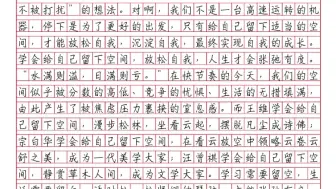 不被打扰”的想法。对啊，我们不是一台高速运转的机
器，停下是为了更好的出发，只有给自己留下适当的空
间，才能放松自我，沉淀自我，最终实现自我的成长。
学会给自己留下空间，放松自我，人生才会张弛有度。
“水满则溢，目满则亏。”在快节奏的今天，我们的空
间似乎被分数的高低，竞争的忧惧、生活的无措填满，
由此产生了被焦虑压力裹挟的窒息感。而王维学会给自
己留下空间，漫步松林，坐看云起，摆脱凡尘成诗佛；
宗白华学会给自己留下空间，在看云被空中领略云卷云
舒之美，成为一代美学大家；汪曾祺学会给自己留下空
间，静赏草木人间，成为文学大家。学习需要留下空间，